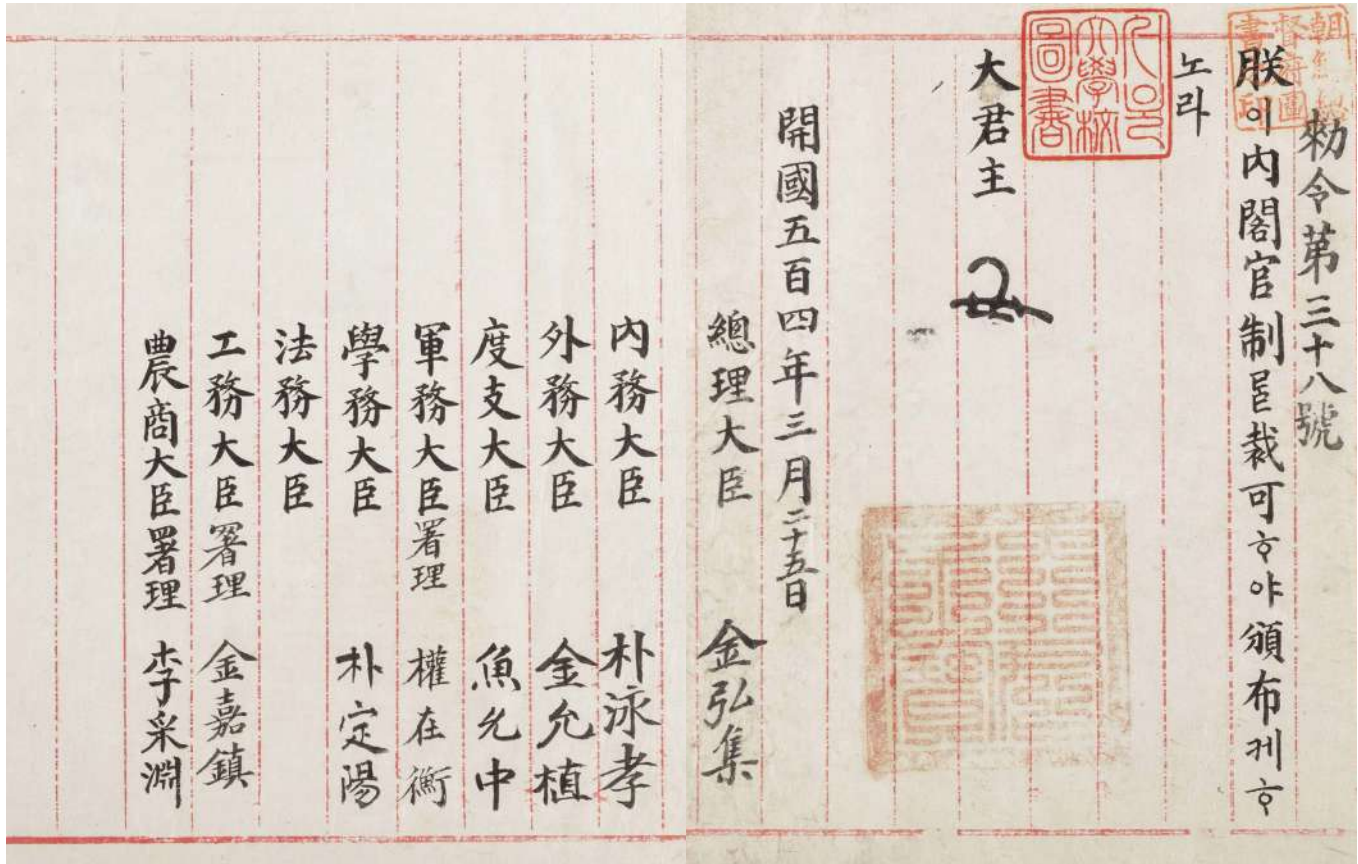 朝鮮總督府圖書之印
勅令第三十八號
朕이內閣官制를裁可ᄒᆞ야頒布케ᄒᆞ
노라
서울大學校圖書
大君主
開國五百四年三月二十五日
總理大臣 金弘集
內務大臣 朴泳孝
外務大臣 金允植
度支大臣 魚允中
軍務大臣署理 權在衡
學務大臣 朴定陽
法務大臣
工務大臣署理 金嘉鎮
農商大臣署理 李采淵